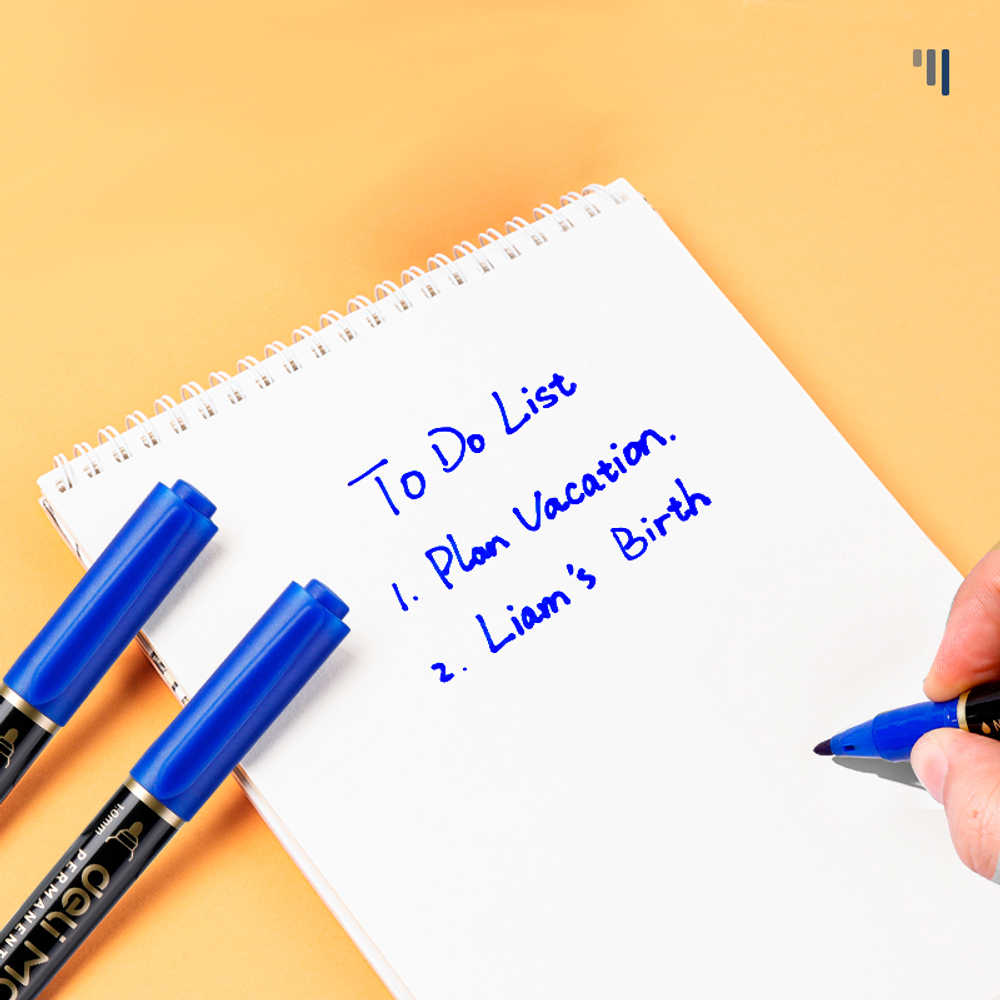 To Do List
1. Plan Vacation.
2. Liam's Birth
1.0mm
deli
PERMANENT